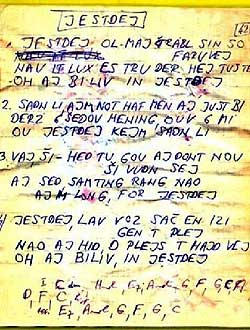 JESTDEJ
1. JESTDEJ OL MAJ TRABL SIN SO
FARUVEJ
NAU IT LUX ES TRU DER HEJ TU STEJ
OH AJ BILIV IN JESTDEJ
2. SADN LI AJM NOT HAF MEN AJ JUST BI
DERZ E ŠEDOU HENING OUV E MI
OU JESTDEJ KEJM SADN LI
3. VAJ ŠI - HED TU GOU AJ DONT NOU
ŠI VUDN SEJ
AJ SED SAMTING RANG NAO
AJ M LONG, FOR JESTDEJ
JESTDEJ, LAV VOZ SAČ EN IZI
GEN T PLEJ
NAO AJ HID O PLEJS T HAJD VEJ
OH AJ BILIV, IN JESTDEJ
G, F, G, C